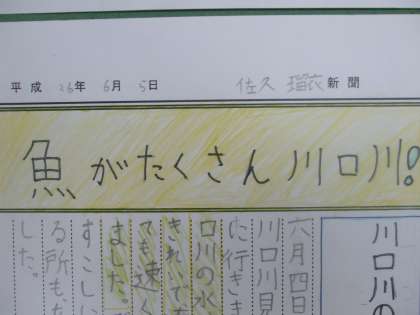 平成 26年 6月 5日 佐久 瑠衣 新聞
魚がたくさん川口川!
川口川の
六月四日
川口川見
に行きま
口川の水
きれいで
ても速く
ました。
すこしに
る所も
した。